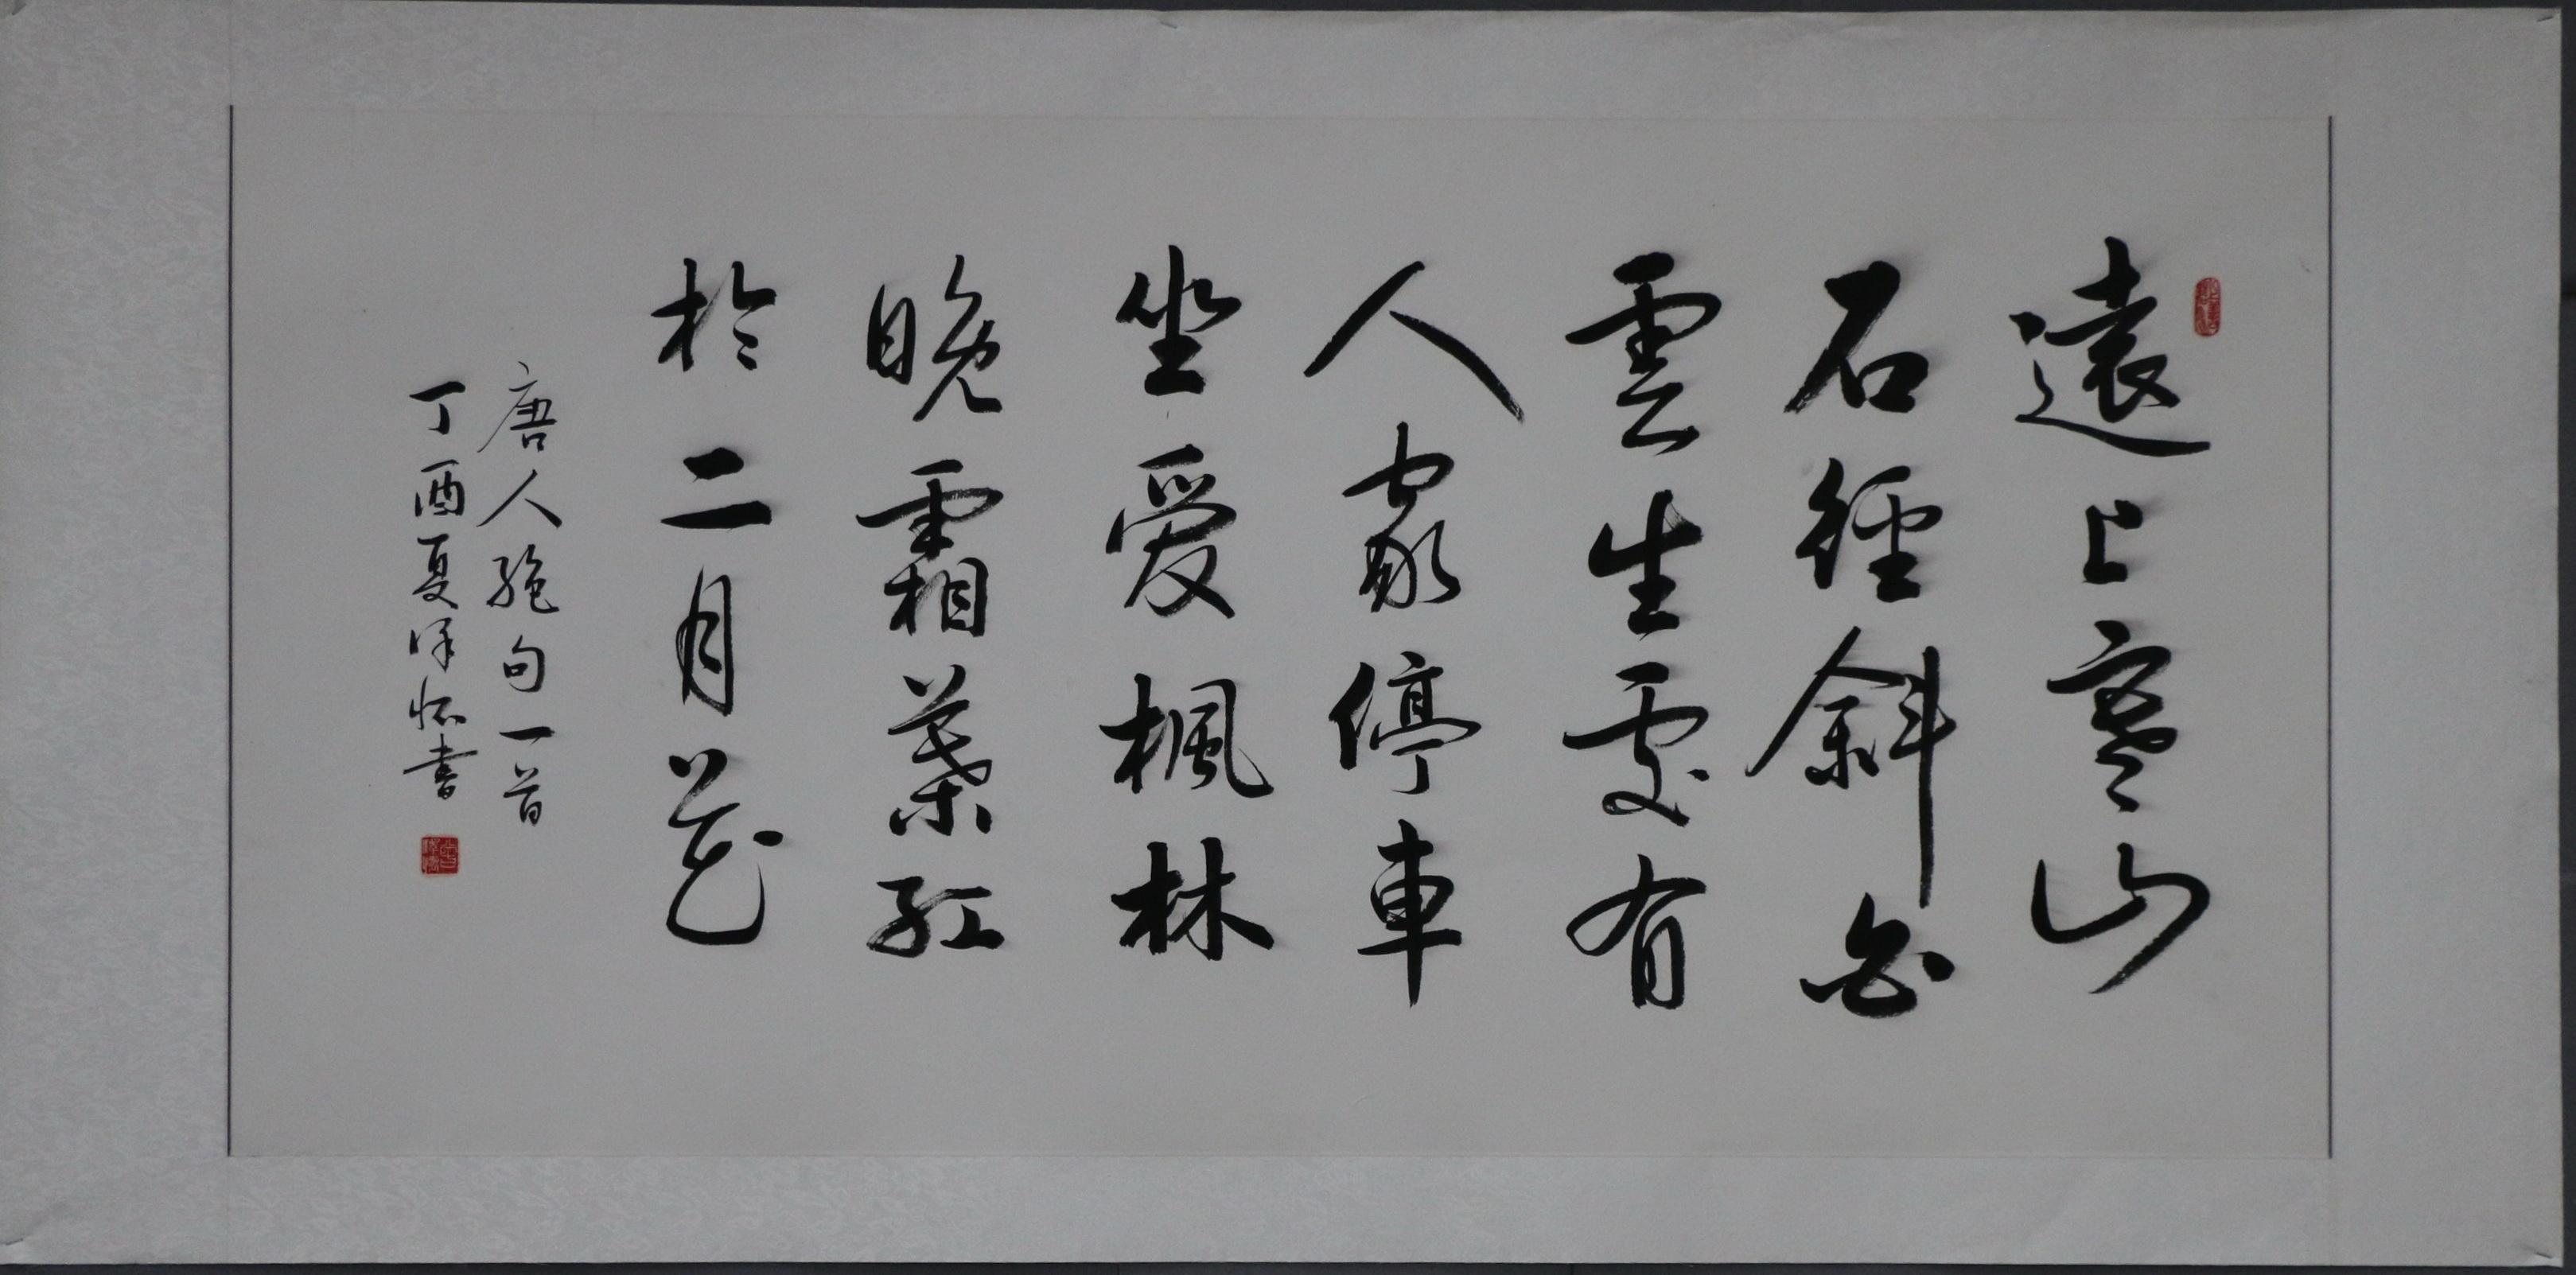 遠上寒山
石徑斜白
雲生處有
人家停車
坐愛楓林
晚霜葉紅
於二月花
唐人絶句一首
丁酉夏澤懷書